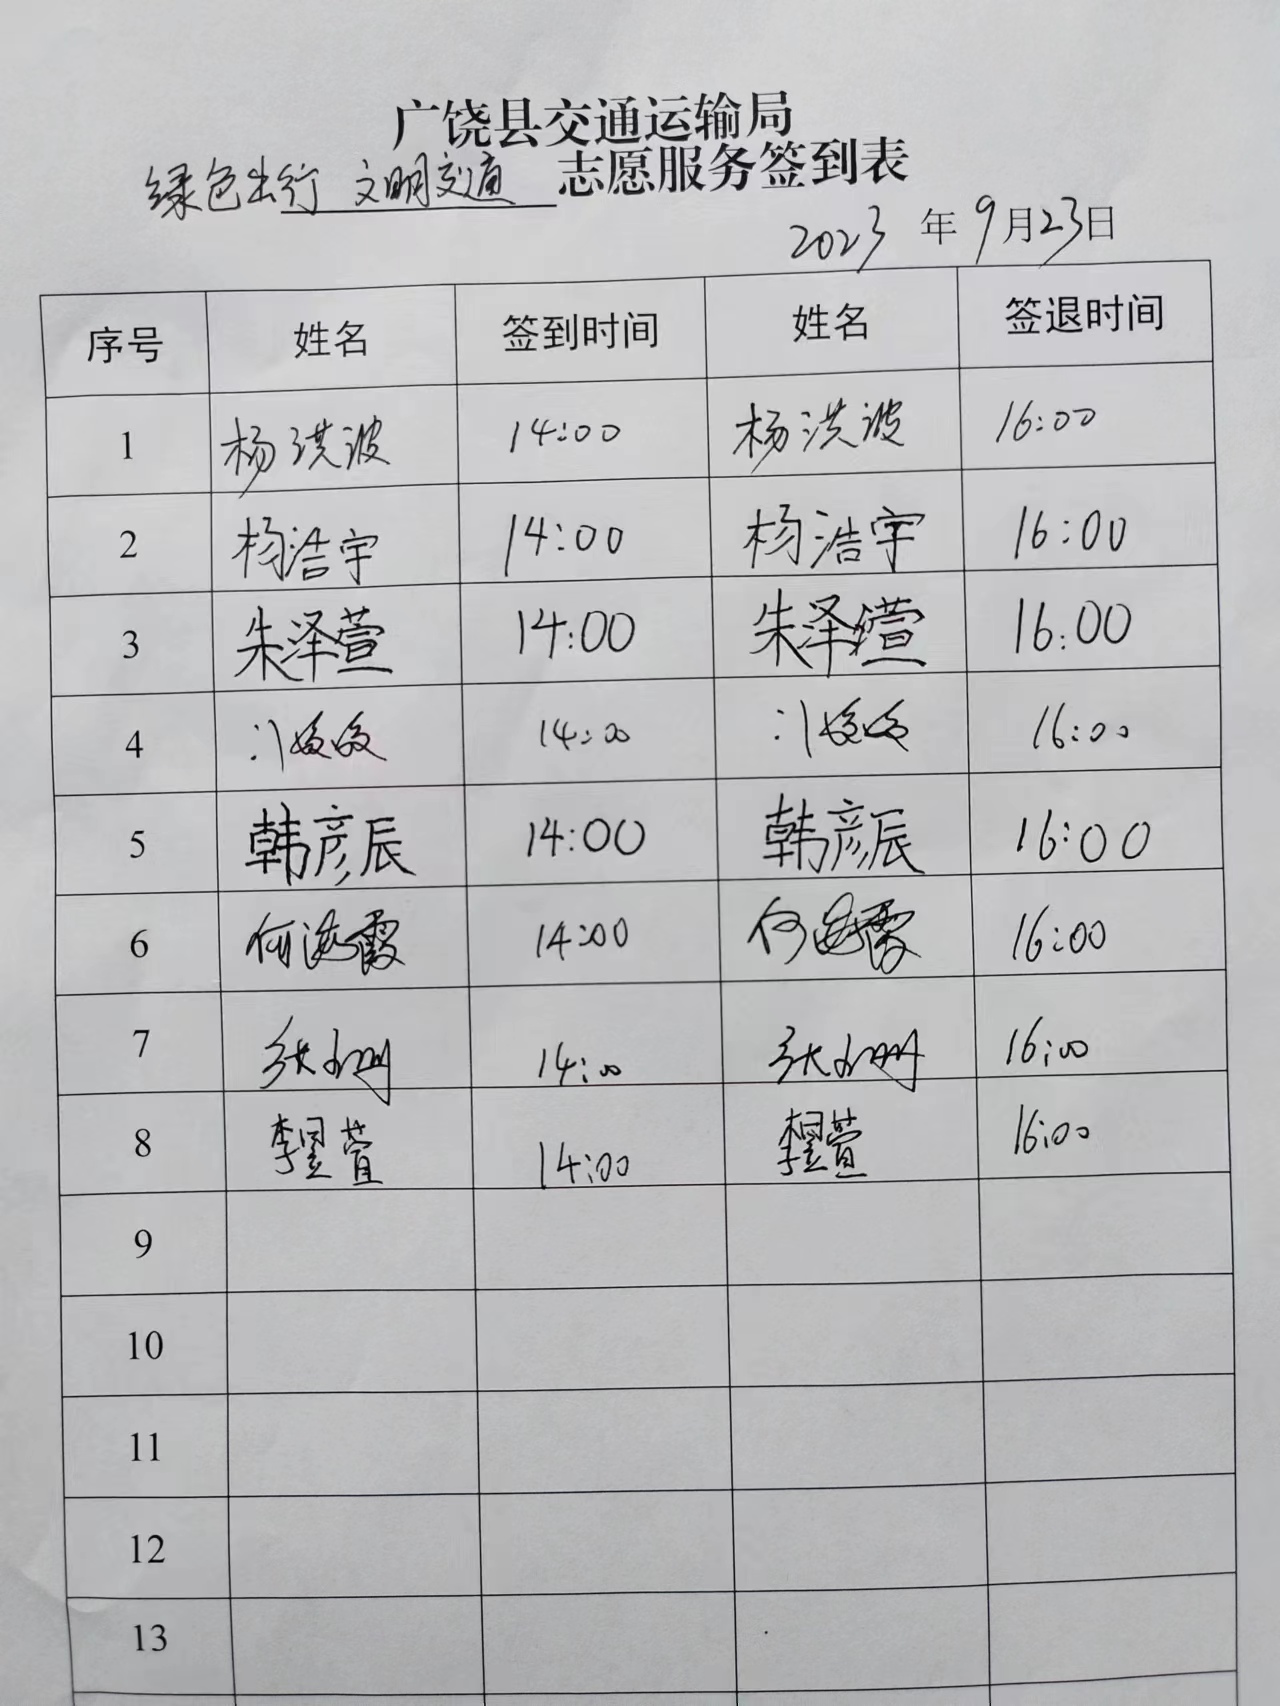 广饶县交通运输局
绿色出行 文明交通 志愿服务签到表
2023年9月23日
序号 姓名 签到时间 姓名 签退时间
1 杨洪波 14:00 杨洪波 16:00
2 杨浩宇 14:00 杨浩宇 16:00
3 朱泽萱 14:00 朱泽萱 16:00
4 14:00 16:00
5 韩彦辰 14:00 韩彦辰 16:00
6 何海霞 14:00 何海霞 16:00
7 张 14:00 张 16:00
8 李昱萱 14:00 李昱萱 16:00
9
10
11
12
13